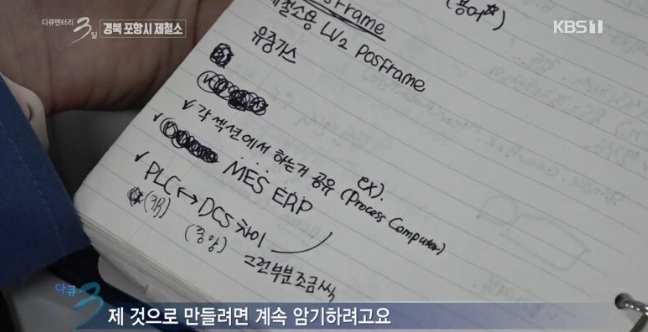 다큐멘터리 3일 경북 포항시 제철소
KBS1
PosFrame
(용어☆)
제철소용 LV2 PosFrame
유증가스
✓ 각 섹션에서 하는거 공유 (Process Computer)
ex).
✓
MES ERP
✓ PLC ↔ DCS 차이
(중앙)
그런부분 조금씩
다큐3 제 것으로 만들려면 계속 암기하려고요